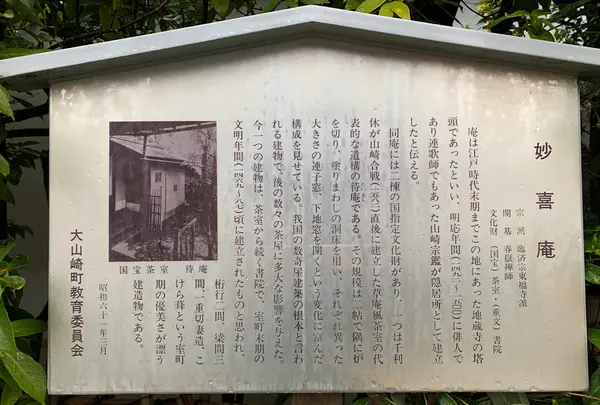 妙喜庵
宗派 臨済宗東福寺派
開基 春嶽禅師
文化財 (国宝)茶室・(重文)書院
庵は江戸時代末期までこの地にあった地蔵寺の塔
頭であったといい、明応年間(一四九二〜一五〇一)に俳人で
あり連歌師でもあった山崎宗鑑が隠居所として建立
したと伝える。
同庵には二棟の国指定文化財があり、一つは千利
休が山崎合戦(一五八二)直後に建立した草庵風茶室の代
表的な遺構の待庵である。その規模は二帖で隅に炉
を切り、塗りまわしの洞床を用い、それぞれ異った
大きさの連子窓、下地窓を開くという変化に富んだ
構成を見せている。我国の数寄屋建築の根本と言わ
れる建物で、後の数々の茶屋に多大な影響を与えた。
今一つの建物は、茶室から続く書院で、室町末期の
文明年間(一四六九〜一四八七)頃に建立されたものと思われ、
桁行二間、梁間三
間、一重切妻造、こ
けら葺という室町
期の優美さが漂う
建造物である。
国宝茶室 待庵
昭和六十一年三月
大山崎町教育委員会